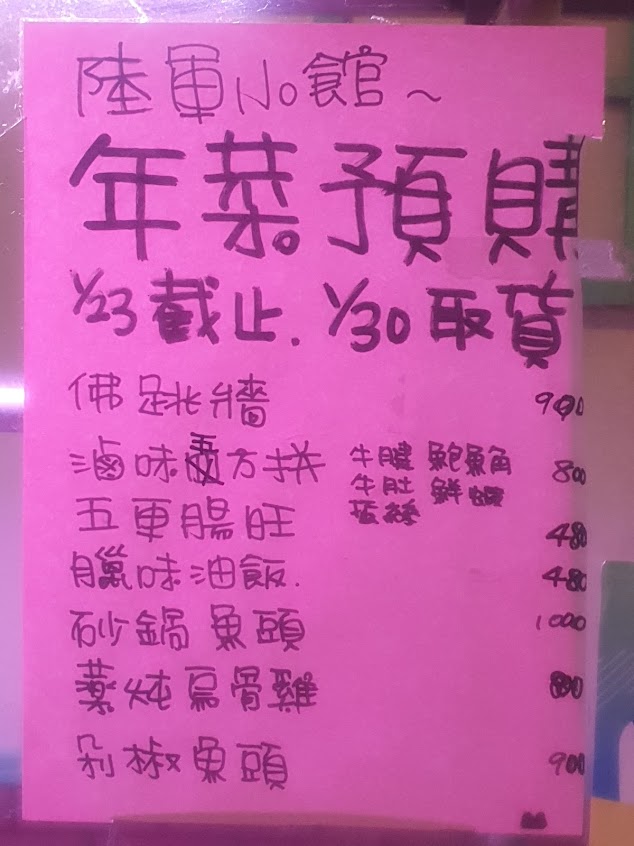 陸軍小館~
年菜預購
1/23截止. 1/30取貨
佛跳牆 900
滷味五方拼 牛腱 鮑魚角 800
牛肚 鮮蝦
蜇絲
五更腸旺 480
臘味油飯. 480
砂鍋魚頭 1000
藥炖烏骨雞 800
剁椒魚頭 900